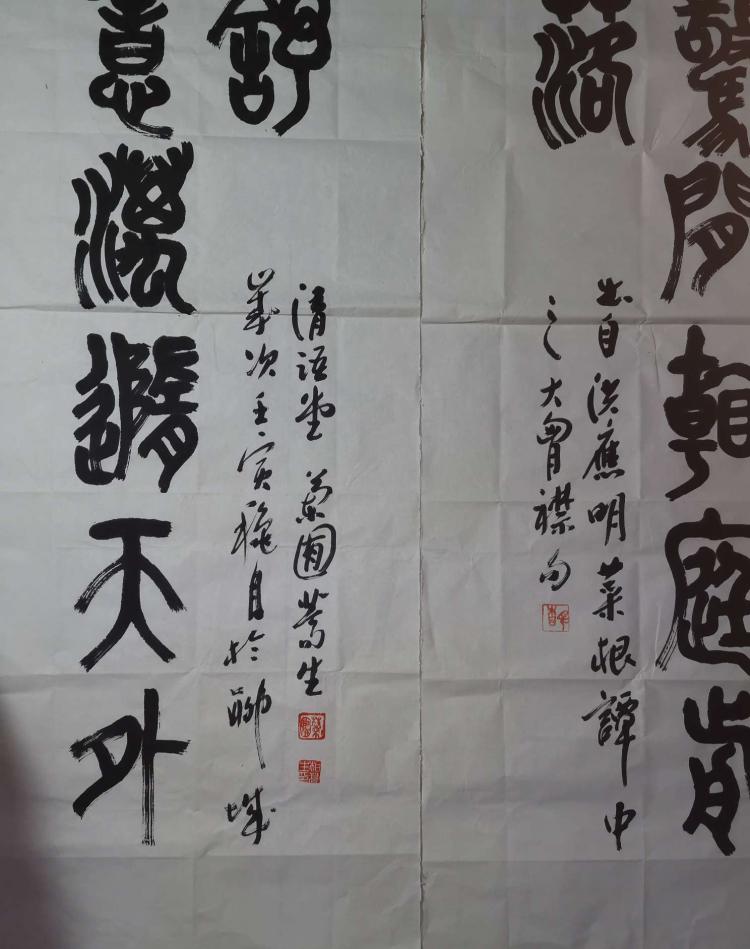 驚閒看庭前
落
出自洪應明菜根譚中
之大胷襟句
意漫隨天外
舒
歲次壬寅穐月於聊城
清語堂蘭圃蒿生